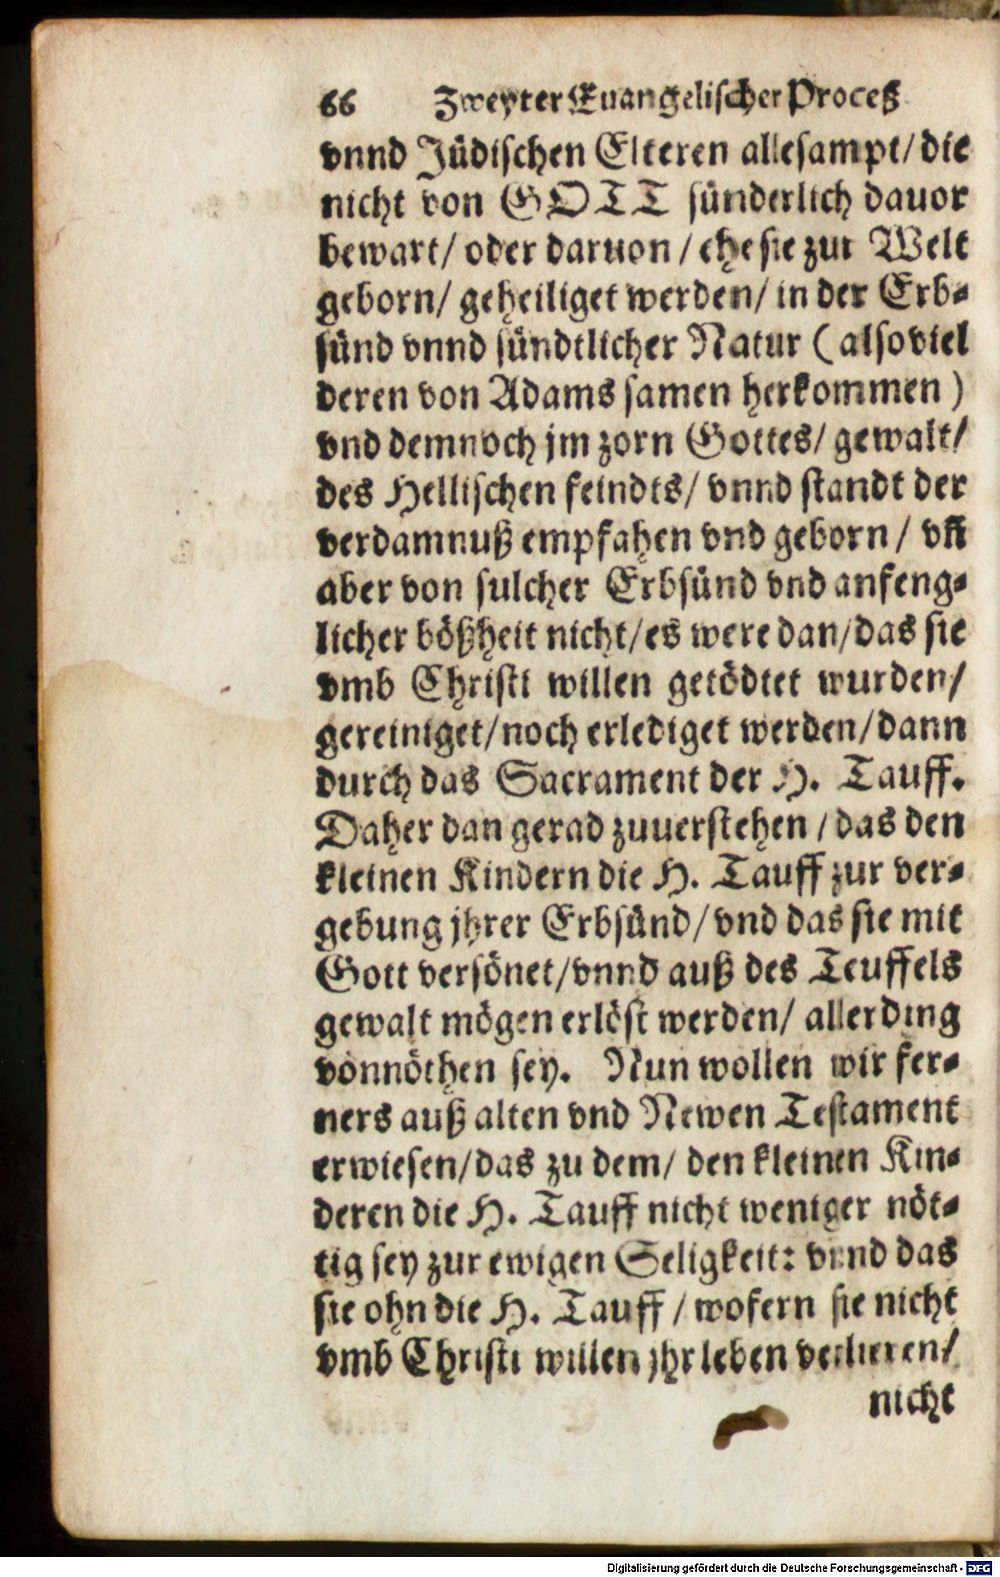 66 Zweyter Euangelischer Proceß
vnnd Jüdischen Elteren allesampt/ die
nicht von GOTT sünderlich dauor
bewart/ oder daruon / ehe sie zur Welt
geborn/ geheiliget werden/ in der Erb-
sünd vnnd sündtlicher Natur ( alsoviel
deren von Adams samen herkommen )
vnd demnoch jm zorn Gottes/ gewalt/
des Hellischen feindts/ vnnd standt der
verdamnuß empfahen vnd geborn / vñ
aber von sulcher Erbsünd vnd anfeng-
licher bößheit nicht/ es were dan/ das sie
vmb Christi willen getödtet wurden/
gereiniget/ noch erlediget werden/ dann
durch das Sacrament der H. Tauff.
Daher dan gerad zuuerstehen / das den
kleinen Kindern die H. Tauff zur ver-
gebung jhrer Erbsünd/ vnd das sie mit
Gott versönet/ vnnd auß des Teuffels
gewalt mögen erlöst werden/ allerding
vonnöthen sey. Nun wollen wir fer-
ners auß alten vnd Newen Testament
erwiesen/ das zu dem/ den kleinen Kin-
deren die H. Tauff nicht weniger nöt-
tig sey zur ewigen Seligkeit: vnnd das
sie ohn die H. Tauff / wofern sie nicht
vmb Christi willen jhr leben verlieren/
nicht
Digitalisierung gefördert durch die Deutsche Forschungsgemeinschaft - DFG